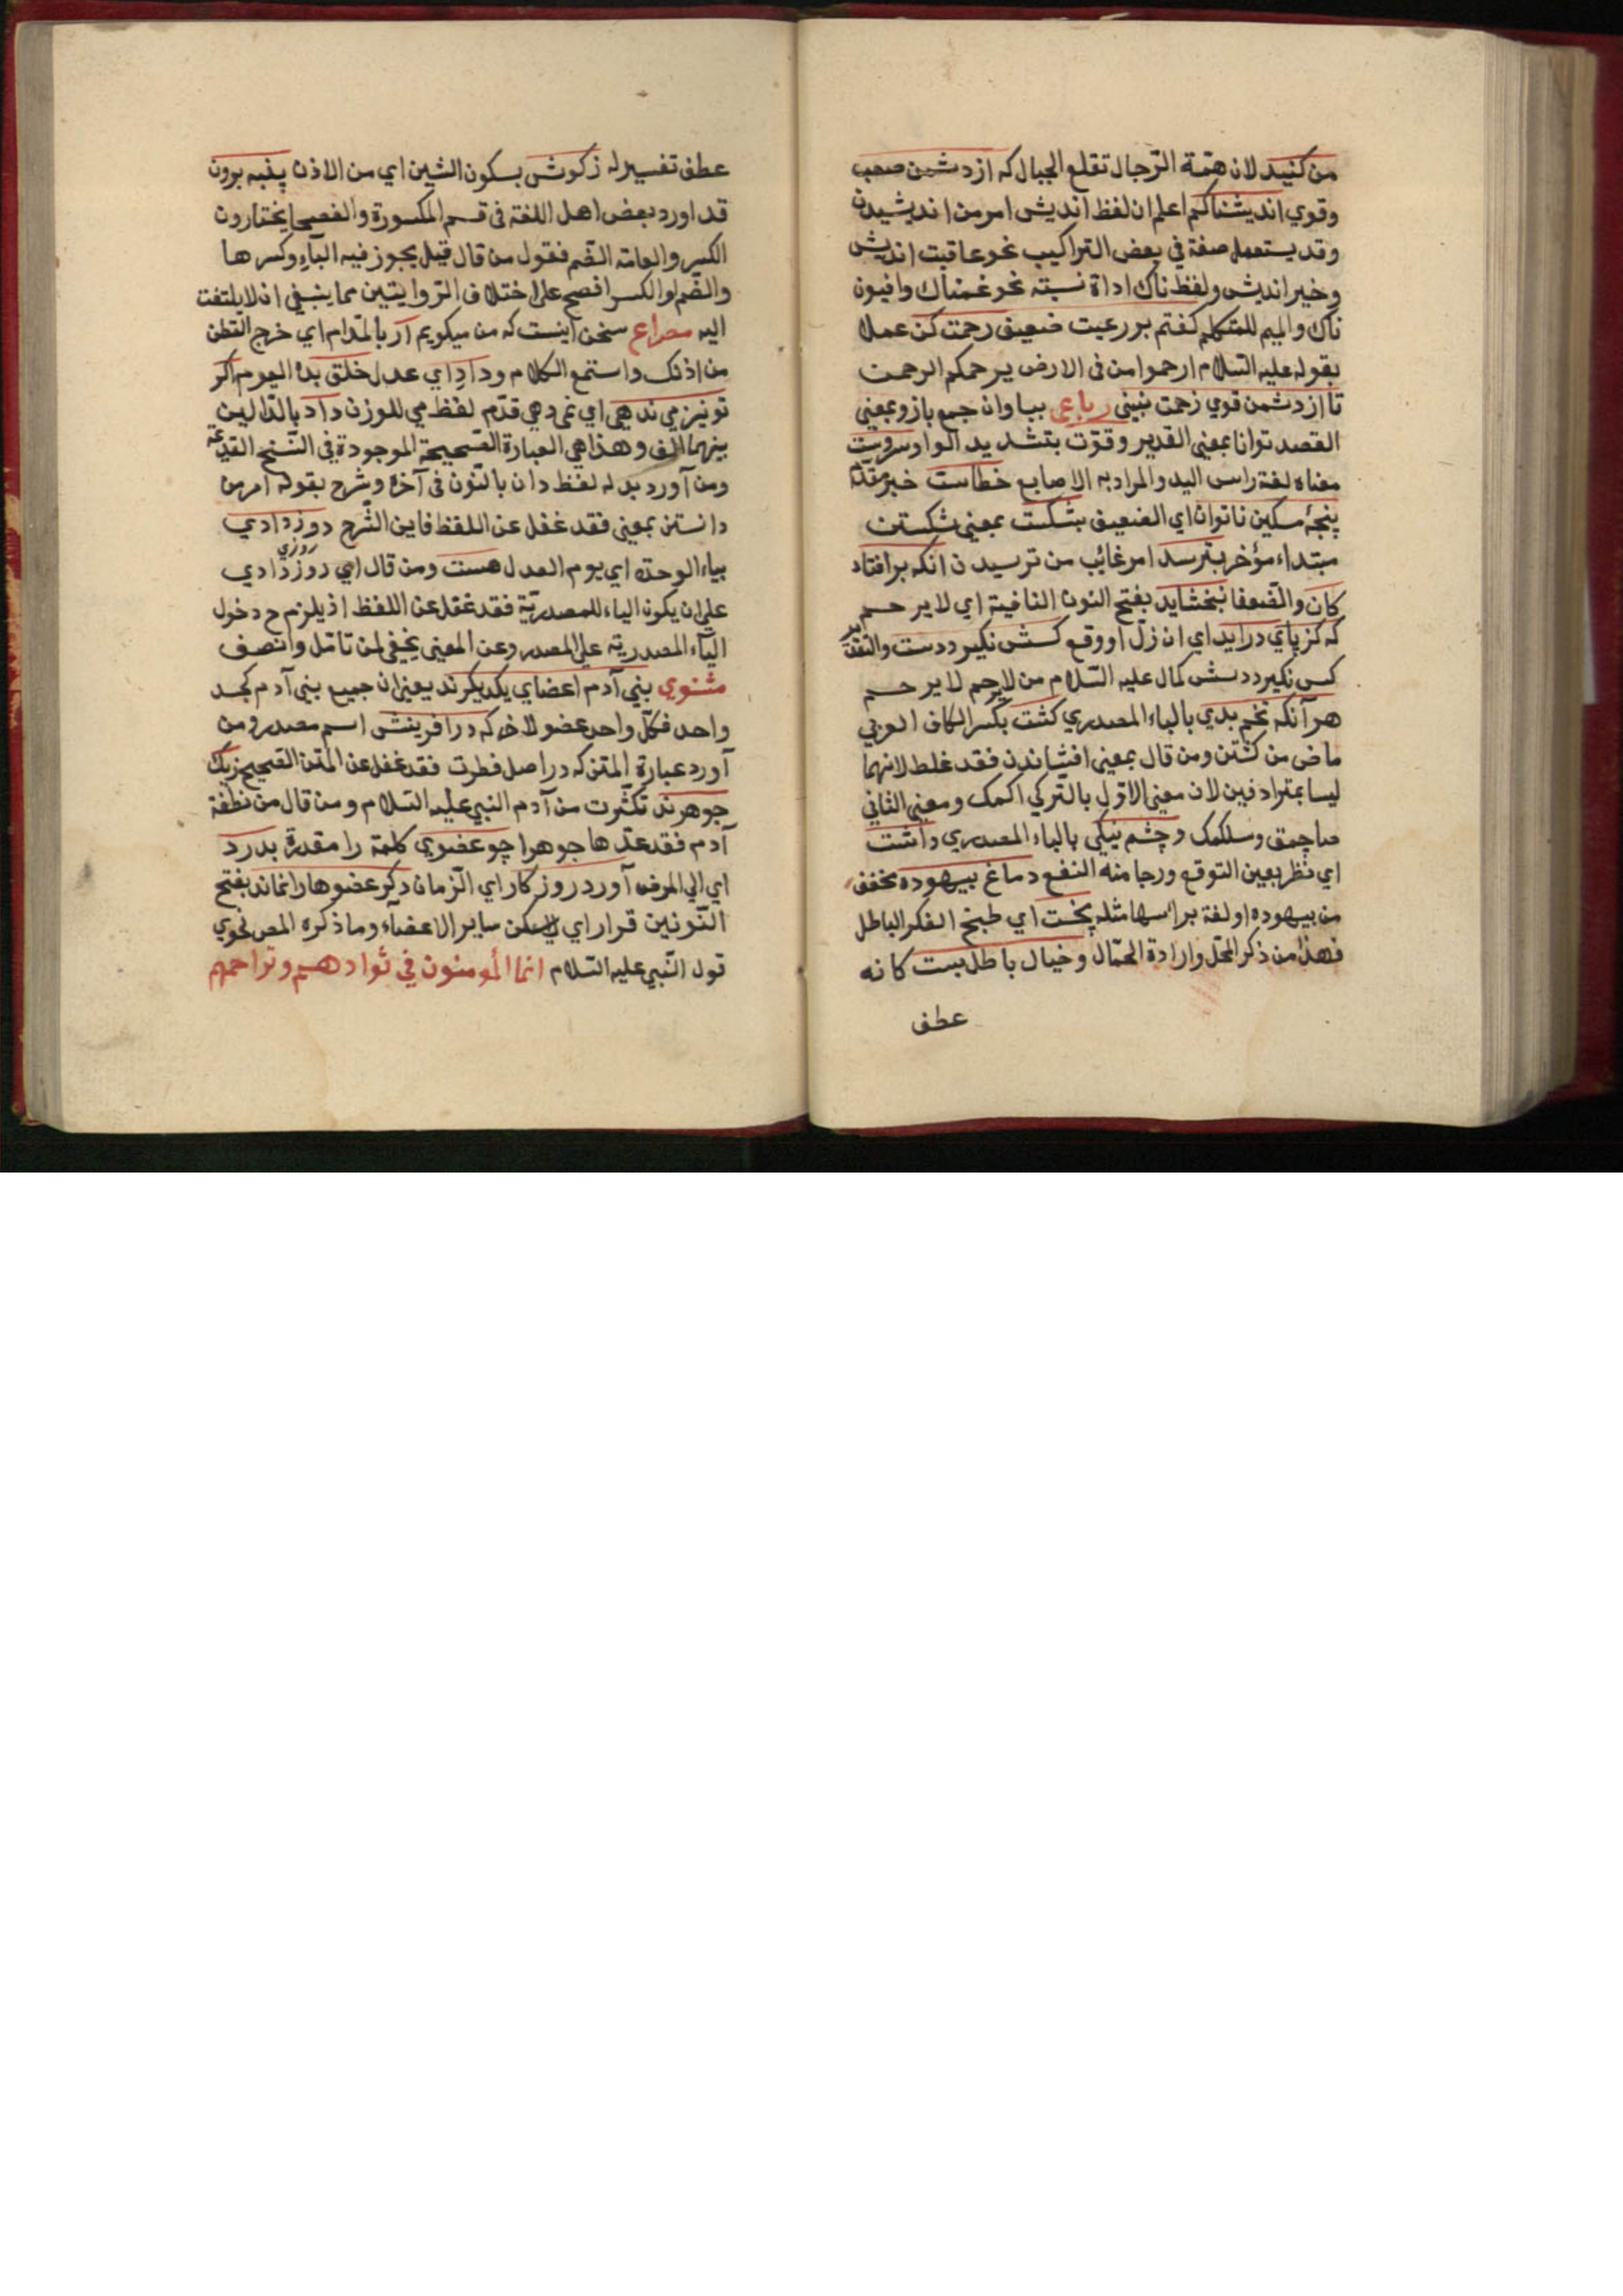 من كنيد لان همّة الرّجال تقلع الجبال كه از دشمن صعب
وقوي انديشناكم اعلم ان لفظ انديش امر من انديشيدن
وقد يستعمل صفة في بعض التراكيب نحو عاقبت انديش
وخير انديش ولفظ ناك اداة نسبته نحو غمناك وافيون
ناك والميم للمتكلم كفتم بر رعيت ضعيف رحمت كن عملا
بقوله عليه السّلام ارحموا من في الارض يرحمكم الرحمن
تا از دشمن قوي زحمت نبيني رباعى ببازوان جمع بازو بمعنى
العضد توانا بمعنى القدير وقوّت بتشديد الواو سر دست
معناه لغة راس اليد والمراد به الاصابع خطاست خبر مقدّم
پنجهٔ مسكين ناتوان اي الضعيف بشكست بمعنى شكستن
مبتداء مؤخر بترسد امر غائب من ترسيدن انكه بر افتاد
كان والضعفا نبخشايد بفتح النون النافية اي لا يرحم
كه كز پاي درايد اي ان زلّ او وقع كسش نكيرد دست والتقدير
كس نكيرد دستش كمال عليه السّلام من لا يرحم لا يرحم
هر آنكه تخم بدي بالياء المصدري كشت بكسر الكاف العربي
ماض من كشتن ومن قال بمعنى افشاندن فقد غلط لانهما
ليسا بمترادفين لان معنى الاوّل بالتركي اكمك ومعنى الثاني
صاچمق وسلكمك وچشم نيكي بالياء المصدري داشت
اي نظر بعين التوقع ورجا منه النفع دماغ بيهوده مخفف
من بيهوده او لغة براسها مثله پخت اي طبخ الفكر الباطل
فهذا من ذكر المحل وارادة الحال وخيال باطل بست كانه
عطف
عطف تفسير له ز كوش بسكون الشين اي من الاذن پنبه برون
قد اورد بعض اهل اللغة في قسم المكسورة والفصحا يختارون
الكسر والعامة الضّم فقول من قال قيل يجوز فيه الباء وكسرها
والضّم او الكسر افصح على اختلاف الرّوايتين مما ينبغي ان لا يلتفت
اليه مصراع سخن اينست كه من ميكويم آر بالمد ام اي خرج القطن
من اذنك واستمع الكلام وداد اي عدل خلق بده اليوم اكر
تو نيز مي ندهي اي نمي دهي قدّم لفظ مي للوزن داد بالدّالين
بينهما الف وهذا هي العبارة الصّحيحة الموجودة في النّسخ القديمة
ومن آورد بدله لفظ دان بالنّون في آخره وشرح بقوله امر من
دانستن بمعنى فقد غفل عن اللفظ فاين الشّرح روز دادي
بياء الوحدة اي يوم العدل هست ومن قال اي روز روزي دادي
على ان يكون الياء للمصدريّة فقد غفل عن اللفظ اذ يلزم ح دخول
الياء المصدرية على المصدر وعن المعنى يخفى لمن تامّل وانصف
مثنوي بني آدم اعضاي يكديكرند يعنى ان جميع بني آدم كجسد
واحد فكلّ واحد عضو لاخر كه در آفرينش اسم مصدر ومن
آورد عبارة المتن كه در اصل فطرت فقد غفل عن المتن الصّحيح ز يك
جوهرند تكثّرت من آدم النبي عليه السّلام ومن قال من نطفة
آدم فقد عدّها جوهرا چو عضوي كلمة را مقدرة بدرد
اي الي المرض آورد روزكار اي الزمان دكر عضوها را نماند بفتح
النّونين قرار اي لا يسكن ساير الاعضاء وما ذكره المص نحوي
قول النّبي عليه السّلام انما المؤمنون في توادهم وتراحمهم